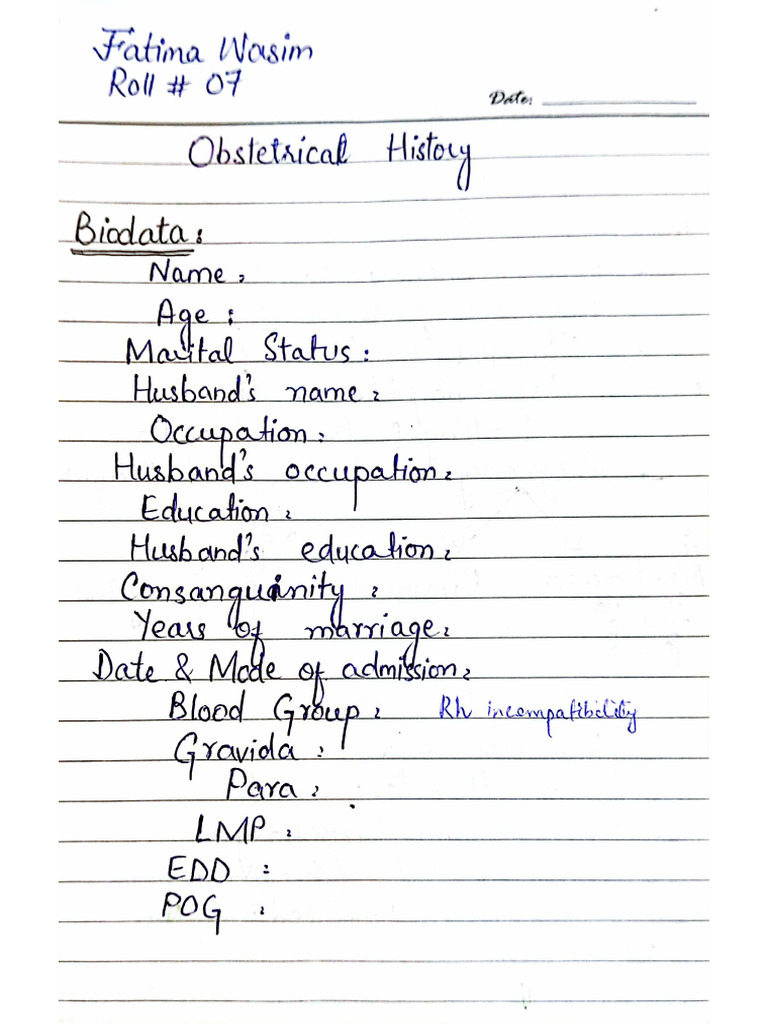 Fatima Wasim
Roll # 07
Date: ____________
Obstetrical History
Biodata:
Name:
Age:
Marital Status:
Husband's name:
Occupation:
Husband's occupation:
Education:
Husband's education:
Consanguinity:
Years of marriage:
Date & Mode of admission:
Blood Group: Rh incompatibility
Gravida:
Para:
LMP:
EDD:
POG: